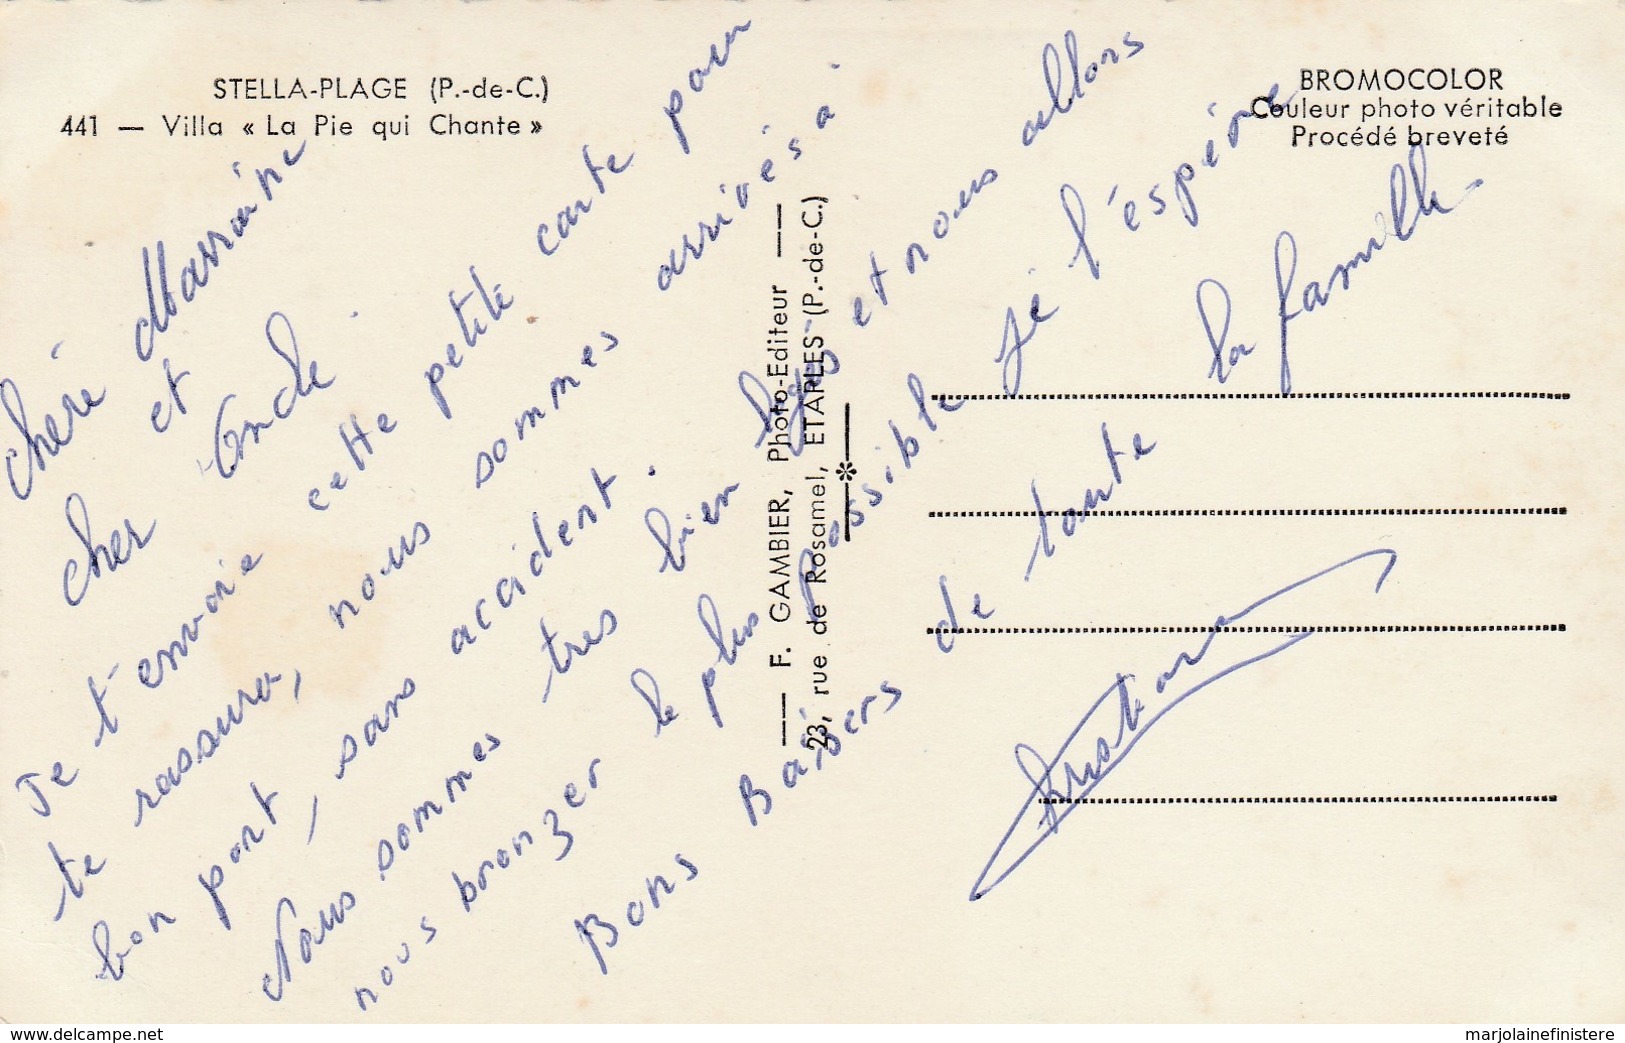 STELLA-PLAGE (P.-de-C.)
441 — Villa « La Pie qui Chante »
BROMOCOLOR
Couleur photo véritable
Procédé breveté
— F. GAMBIER, Photo-Editeur —
23, rue de Rosamel, ETAPLES (P.-de-C.)
Chère Marraine
et
cher Oncle.
Je t'envoie cette petite carte pour
te rassurer, nous sommes arrivés à
bon port, sans accident.
Nous sommes tres bien logés et nous allons
nous bronzer le plus possible je l'éspère
Bons Baisers de toute la famille
delcampe.net
marjolainefinistere